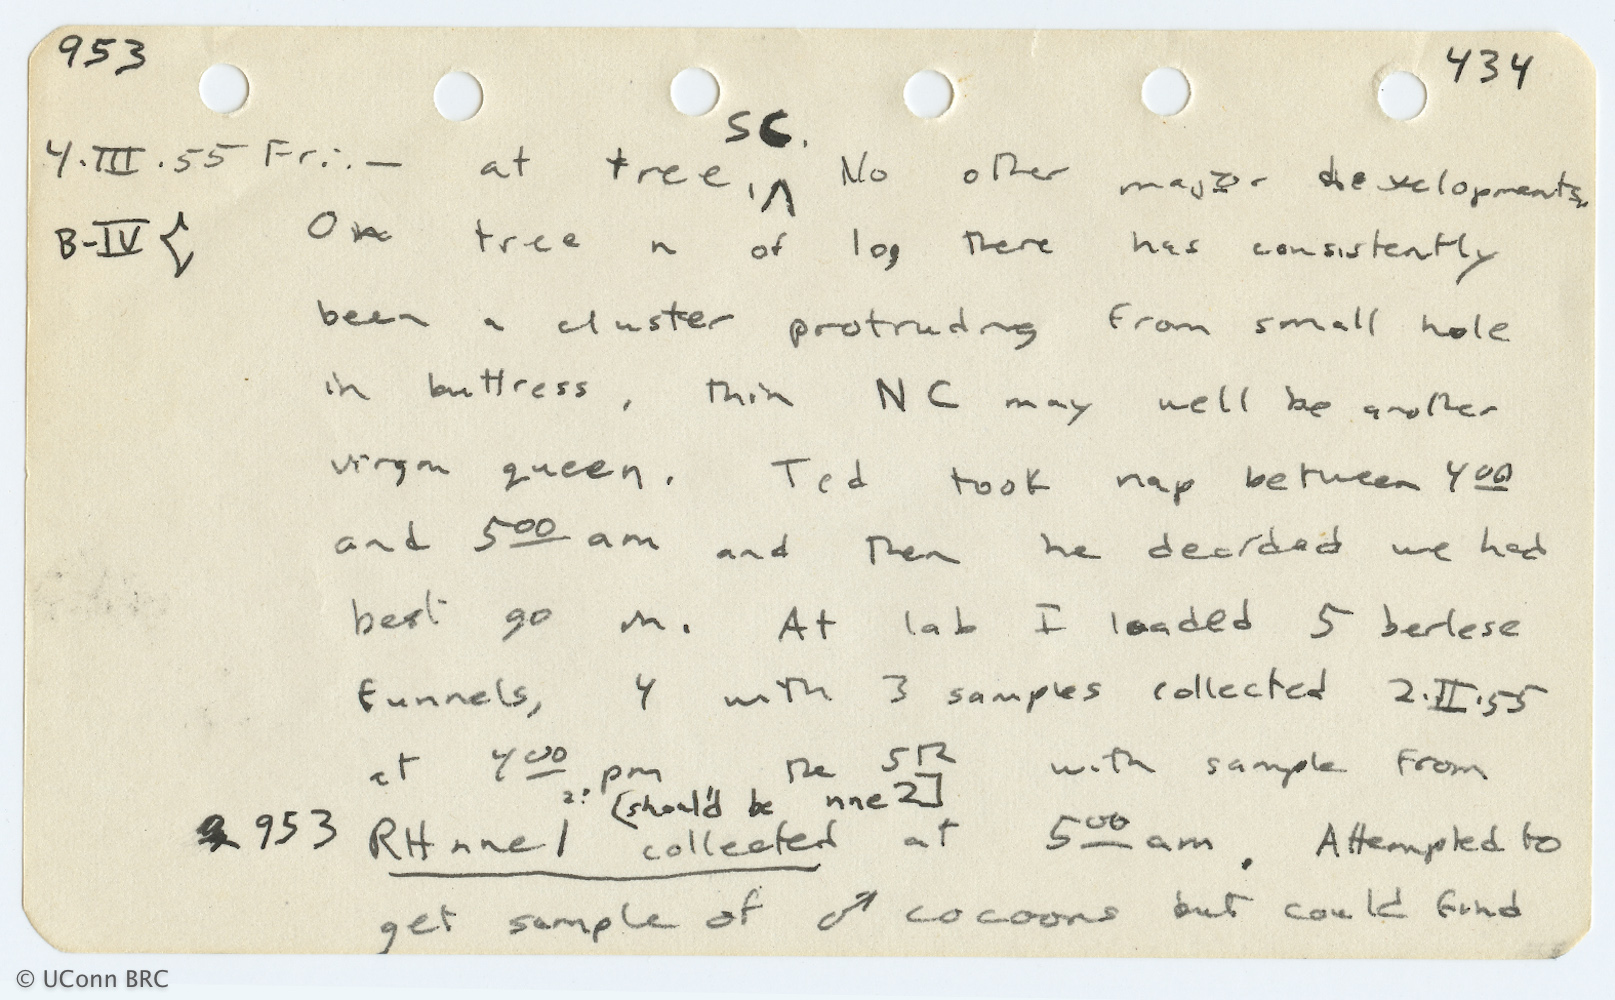 953
434
SC.
4.III.55 Fri:- at tree,^ No other major developments.
B-IV { On tree n of log there has consistently
been a cluster protruding from small hole
in buttress, thin NC may well be another
virgin queen. Ted took nap between 4 00
and 5 00 am and then he decided we had
best go in. At lab I loaded 5 berlese
funnels, 4 with 3 samples collected 2.II.55
at 4 00 pm the 5th with sample from
2? [should be nne2]
953 RHnne1 collected at 5 00 am. Attempted to
get sample of ♂ cocoons but could find
© UConn BRC